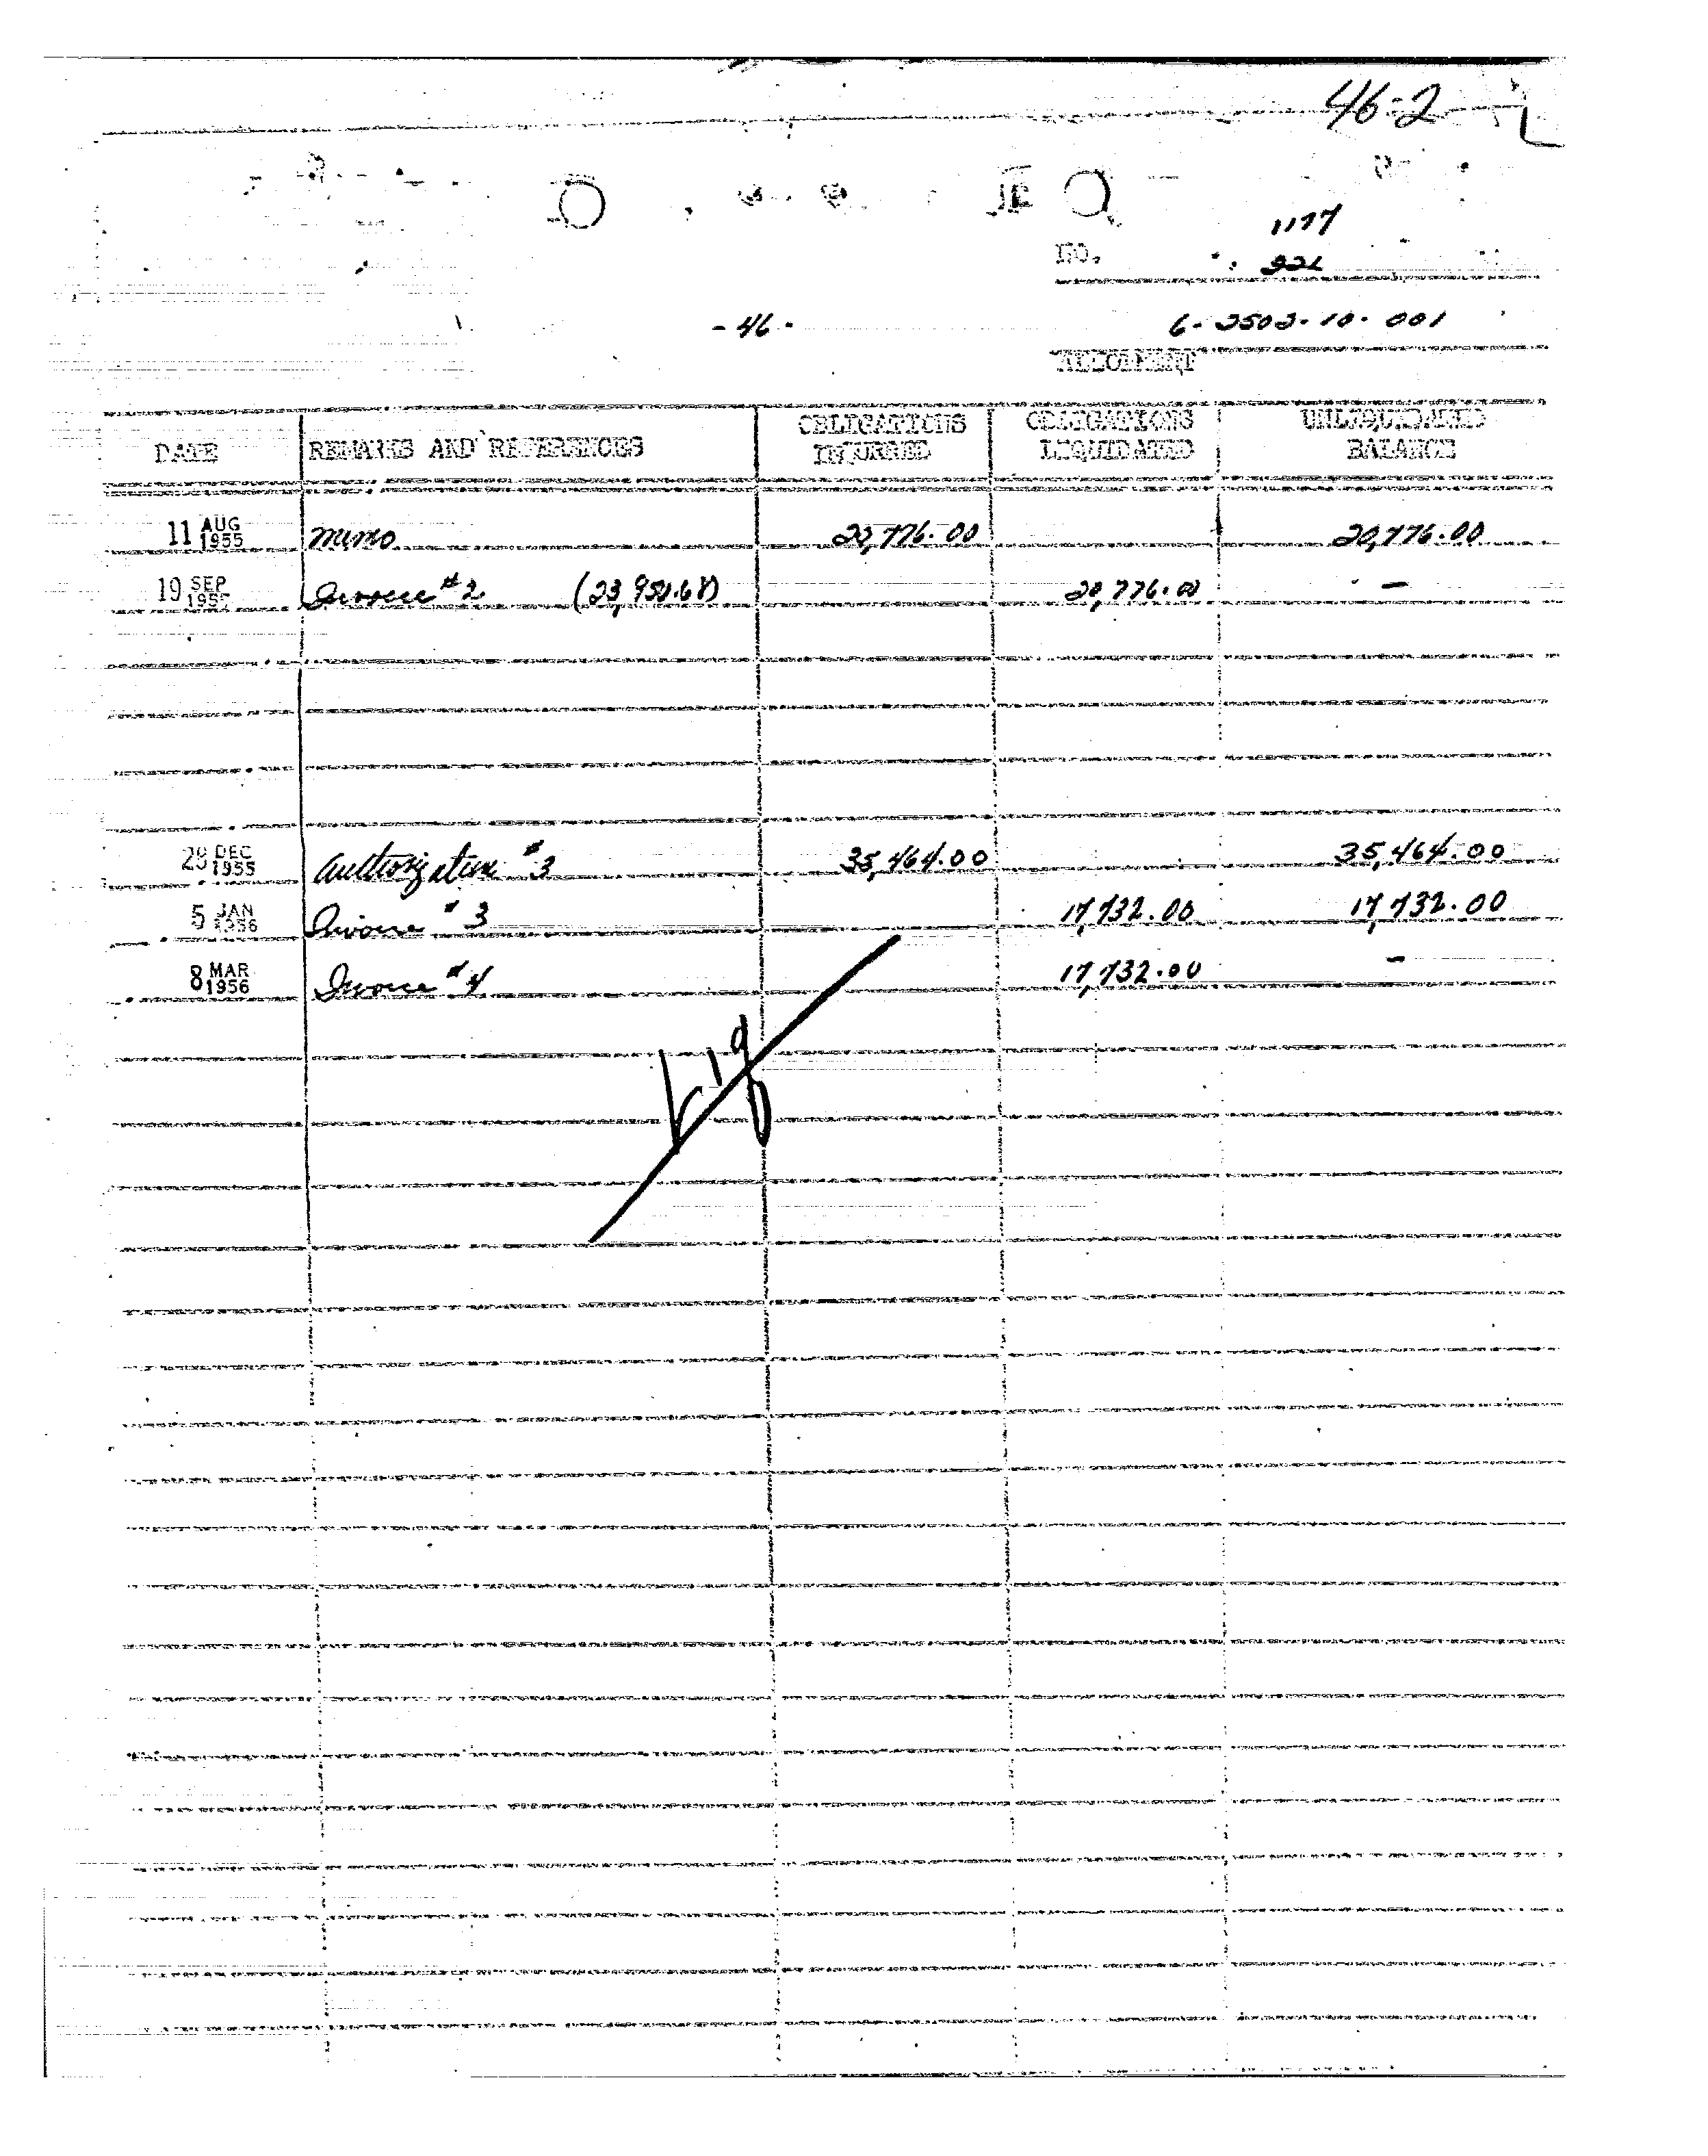 46-2
1177
NO. 221
- 46 - 6-2502-10-001
ALLOTMENT
DATE REMARKS AND REFERENCES OBLIGATIONS INCURRED OBLIGATIONS LIQUIDATED UNLIQUIDATED BALANCE
11 AUG 1955 Memo 20,776.00 20,776.00
19 SEP Invoice #2 20,776.00 -
28 DEC 1955 Authorization #3 35,464.00 35,464.00
5 JAN 1956 Invoice #3 17,732.00 17,732.00
8 MAR 1956 Invoice #4 17,732.00 -